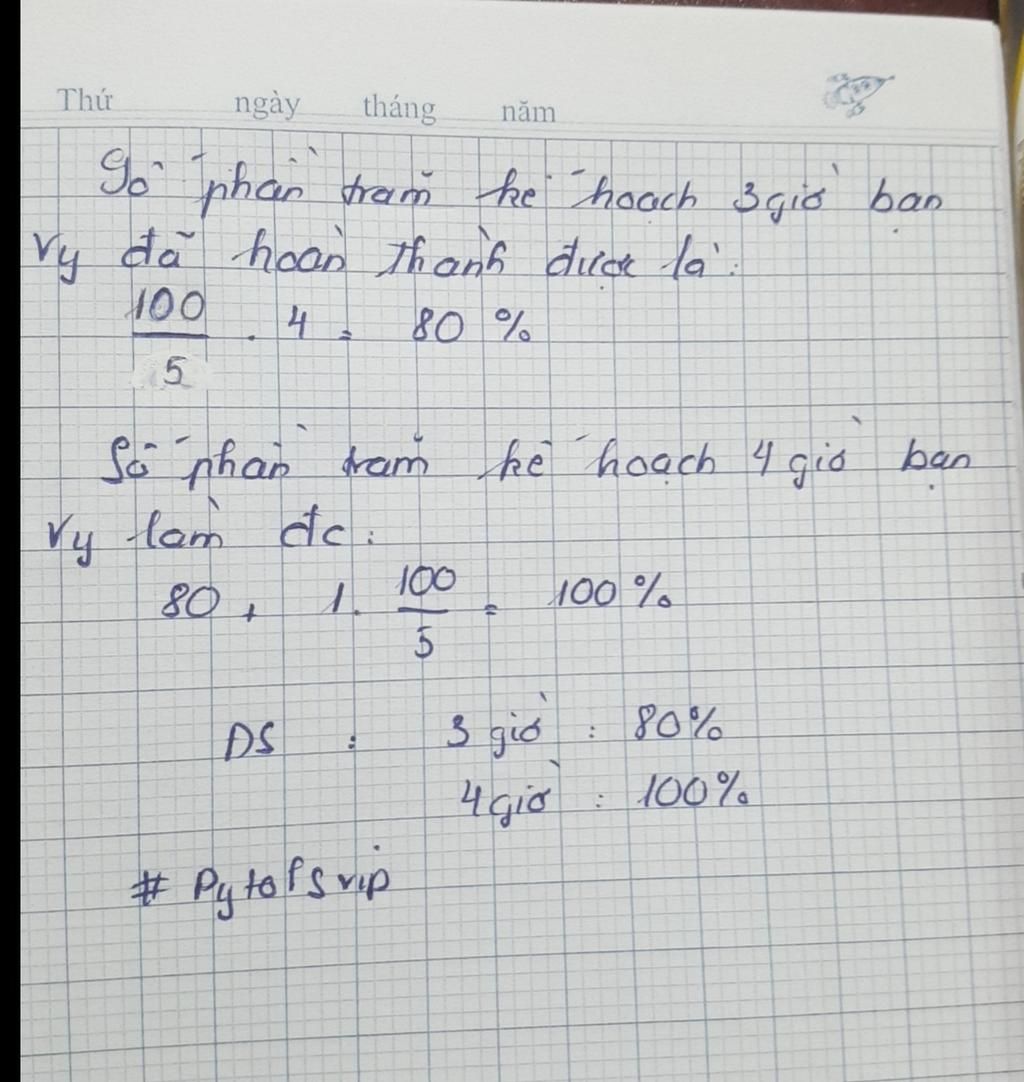 Thứ ngày tháng năm
Số phần trăm kế hoạch 3 giờ bạn
Vy đã hoàn thành được là:
100/5 . 4 = 80 %
Số phần trăm kế hoạch 4 giờ bạn
Vy làm đc:
80 + 1. 100/5 = 100 %
DS : 3 giờ : 80%
4 giờ : 100%
# Pytofsvip